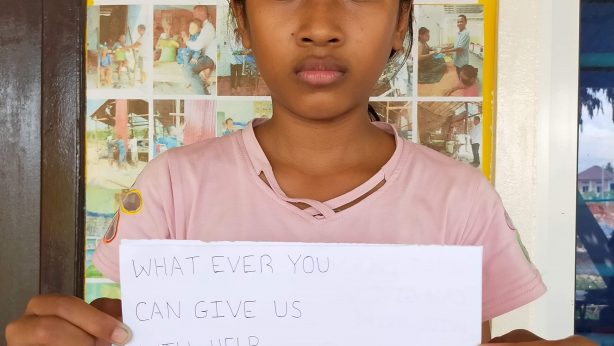 WHAT EVER YOU
CAN GIVE US
HELP